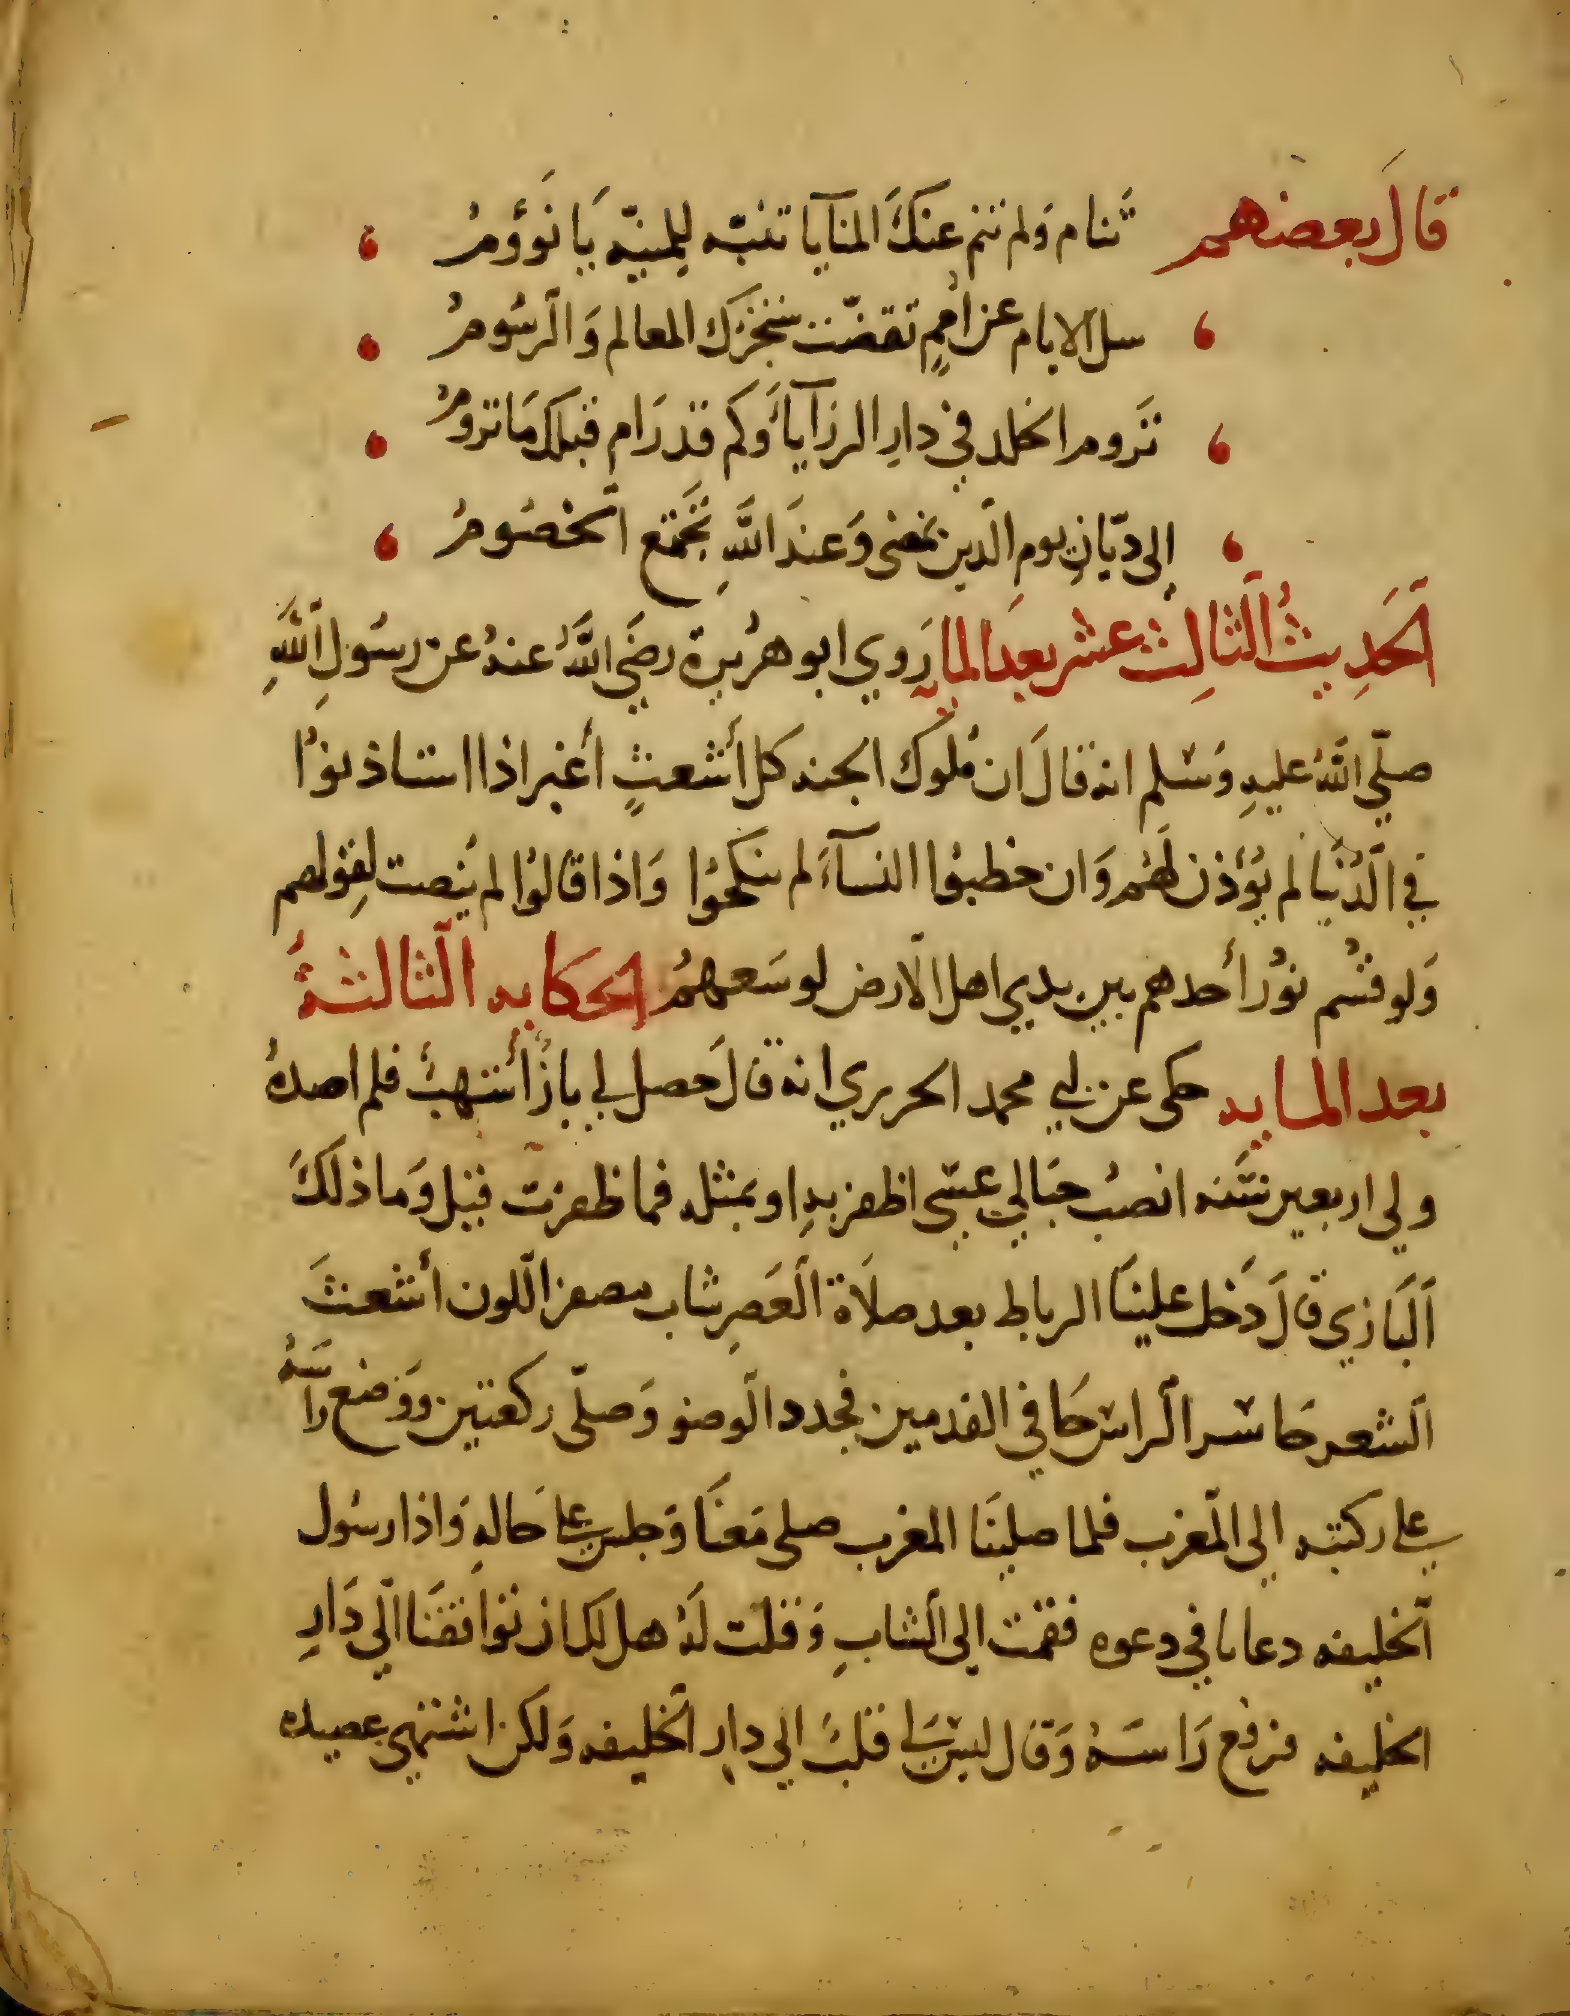 قال بعضهم تنام ولم تنم عنك المنايا تنبّه للمنيّه يا نؤوم
سل الايام عن امم تقضّت ستخبرك المعالم والرسوم
تروم الخلد في دار الرزايا وكم قد رام قبلك ما تروم
إلى ديّان يوم الدين نمضى وعند الله تجتمع الخصوم
الحديث الثالث عشر بعد المايه روي ابو هريرة رضي الله عنه عن رسول الله
صلّى الله عليه وسلم انه قال ان ملوك الجنه كل أشعث أغبر اذا استاذنوا
في الدنيا لم يؤذن لهم وان خطبوا النسآء لم ينكحوا واذا قالوا لم ينصت لقولهم
ولو قسم نور أحدهم بين يدي اهل الارض لوسعهم الحكايه الثالثة
بعد المايه حكى عن ابي محمد الحريري انه قال حصل لي باز أشهب فلم اصده
ولي اربعين سنه انصب حبالي عسى اظفر به او بمثله فما ظفرت قيل وما ذلك
البازي قال دخل علينا الرباط بعد صلاة العصر شاب مصفر اللون أشعث
الشعر حاسر الراس حافي القدمين فجدد الوضو وصلّى ركعتين ووضع راسه
على ركبته إلى المغرب فلما صلينا المغرب صلى معنا وجلس على حاله واذا رسول
الخليفه دعانا في دعوه فقمت إلى الشاب وقلت له هل لك ان توافقنا الى دار
الخليفه فرفع راسه وقال ليس لي قلب الي دار الخليفه ولكن اشتهي عصيده